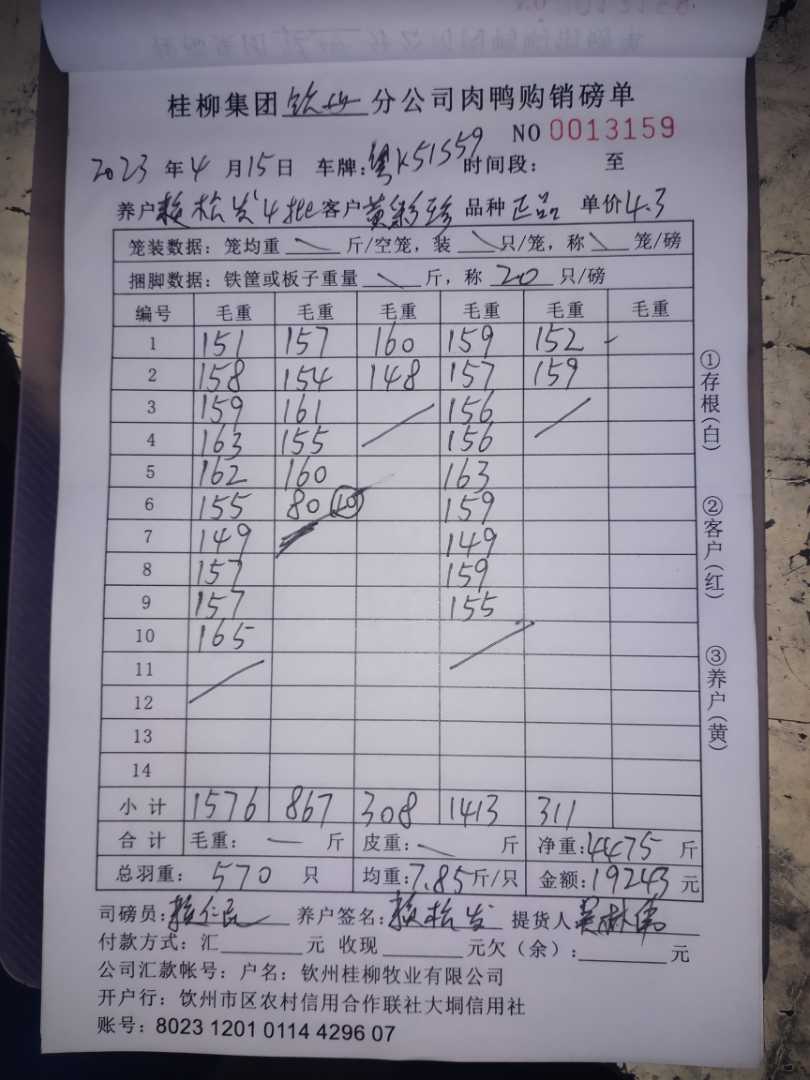 桂柳集团 钦州 分公司肉鸭购销磅单
NO 0013159
2023 年 4 月 15 日 车牌: 粤K51S59 时间段: 至
养户 赖松发 4批 客户 黄彩珍 品种 正品 单价 4.3
笼装数据: 笼均重 \ 斤/空笼, 装 \ 只/笼, 称 \ 笼/磅
捆脚数据: 铁筐或板子重量 \ 斤, 称 20 只/磅
编号 毛重 毛重 毛重 毛重 毛重 毛重
1 151 157 160 159 152 -
2 158 154 148 157 159
3 159 161 / 156 /
4 163 155 156
5 162 160 163
6 155 80 ⑩ 159
7 149 149
8 157 159
9 157 155
10 165 /
11 /
12
13
14
小计 1576 867 308 1413 311
合计 毛重: — 斤 皮重: \ 斤 净重: 4475 斤
总羽重: 570 只 均重: 7.85 斤/只 金额: 19243 元
司磅员: 赖仁 养户签名: 赖松发 提货人
付款方式: 汇 元 收现 元欠(余): 元
公司汇款帐号: 户名: 钦州桂柳牧业有限公司
开户行: 钦州市区农村信用合作联社大垌信用社
账号: 8023 1201 0114 4296 07
①存根(白)
②客户(红)
③养户(黄)